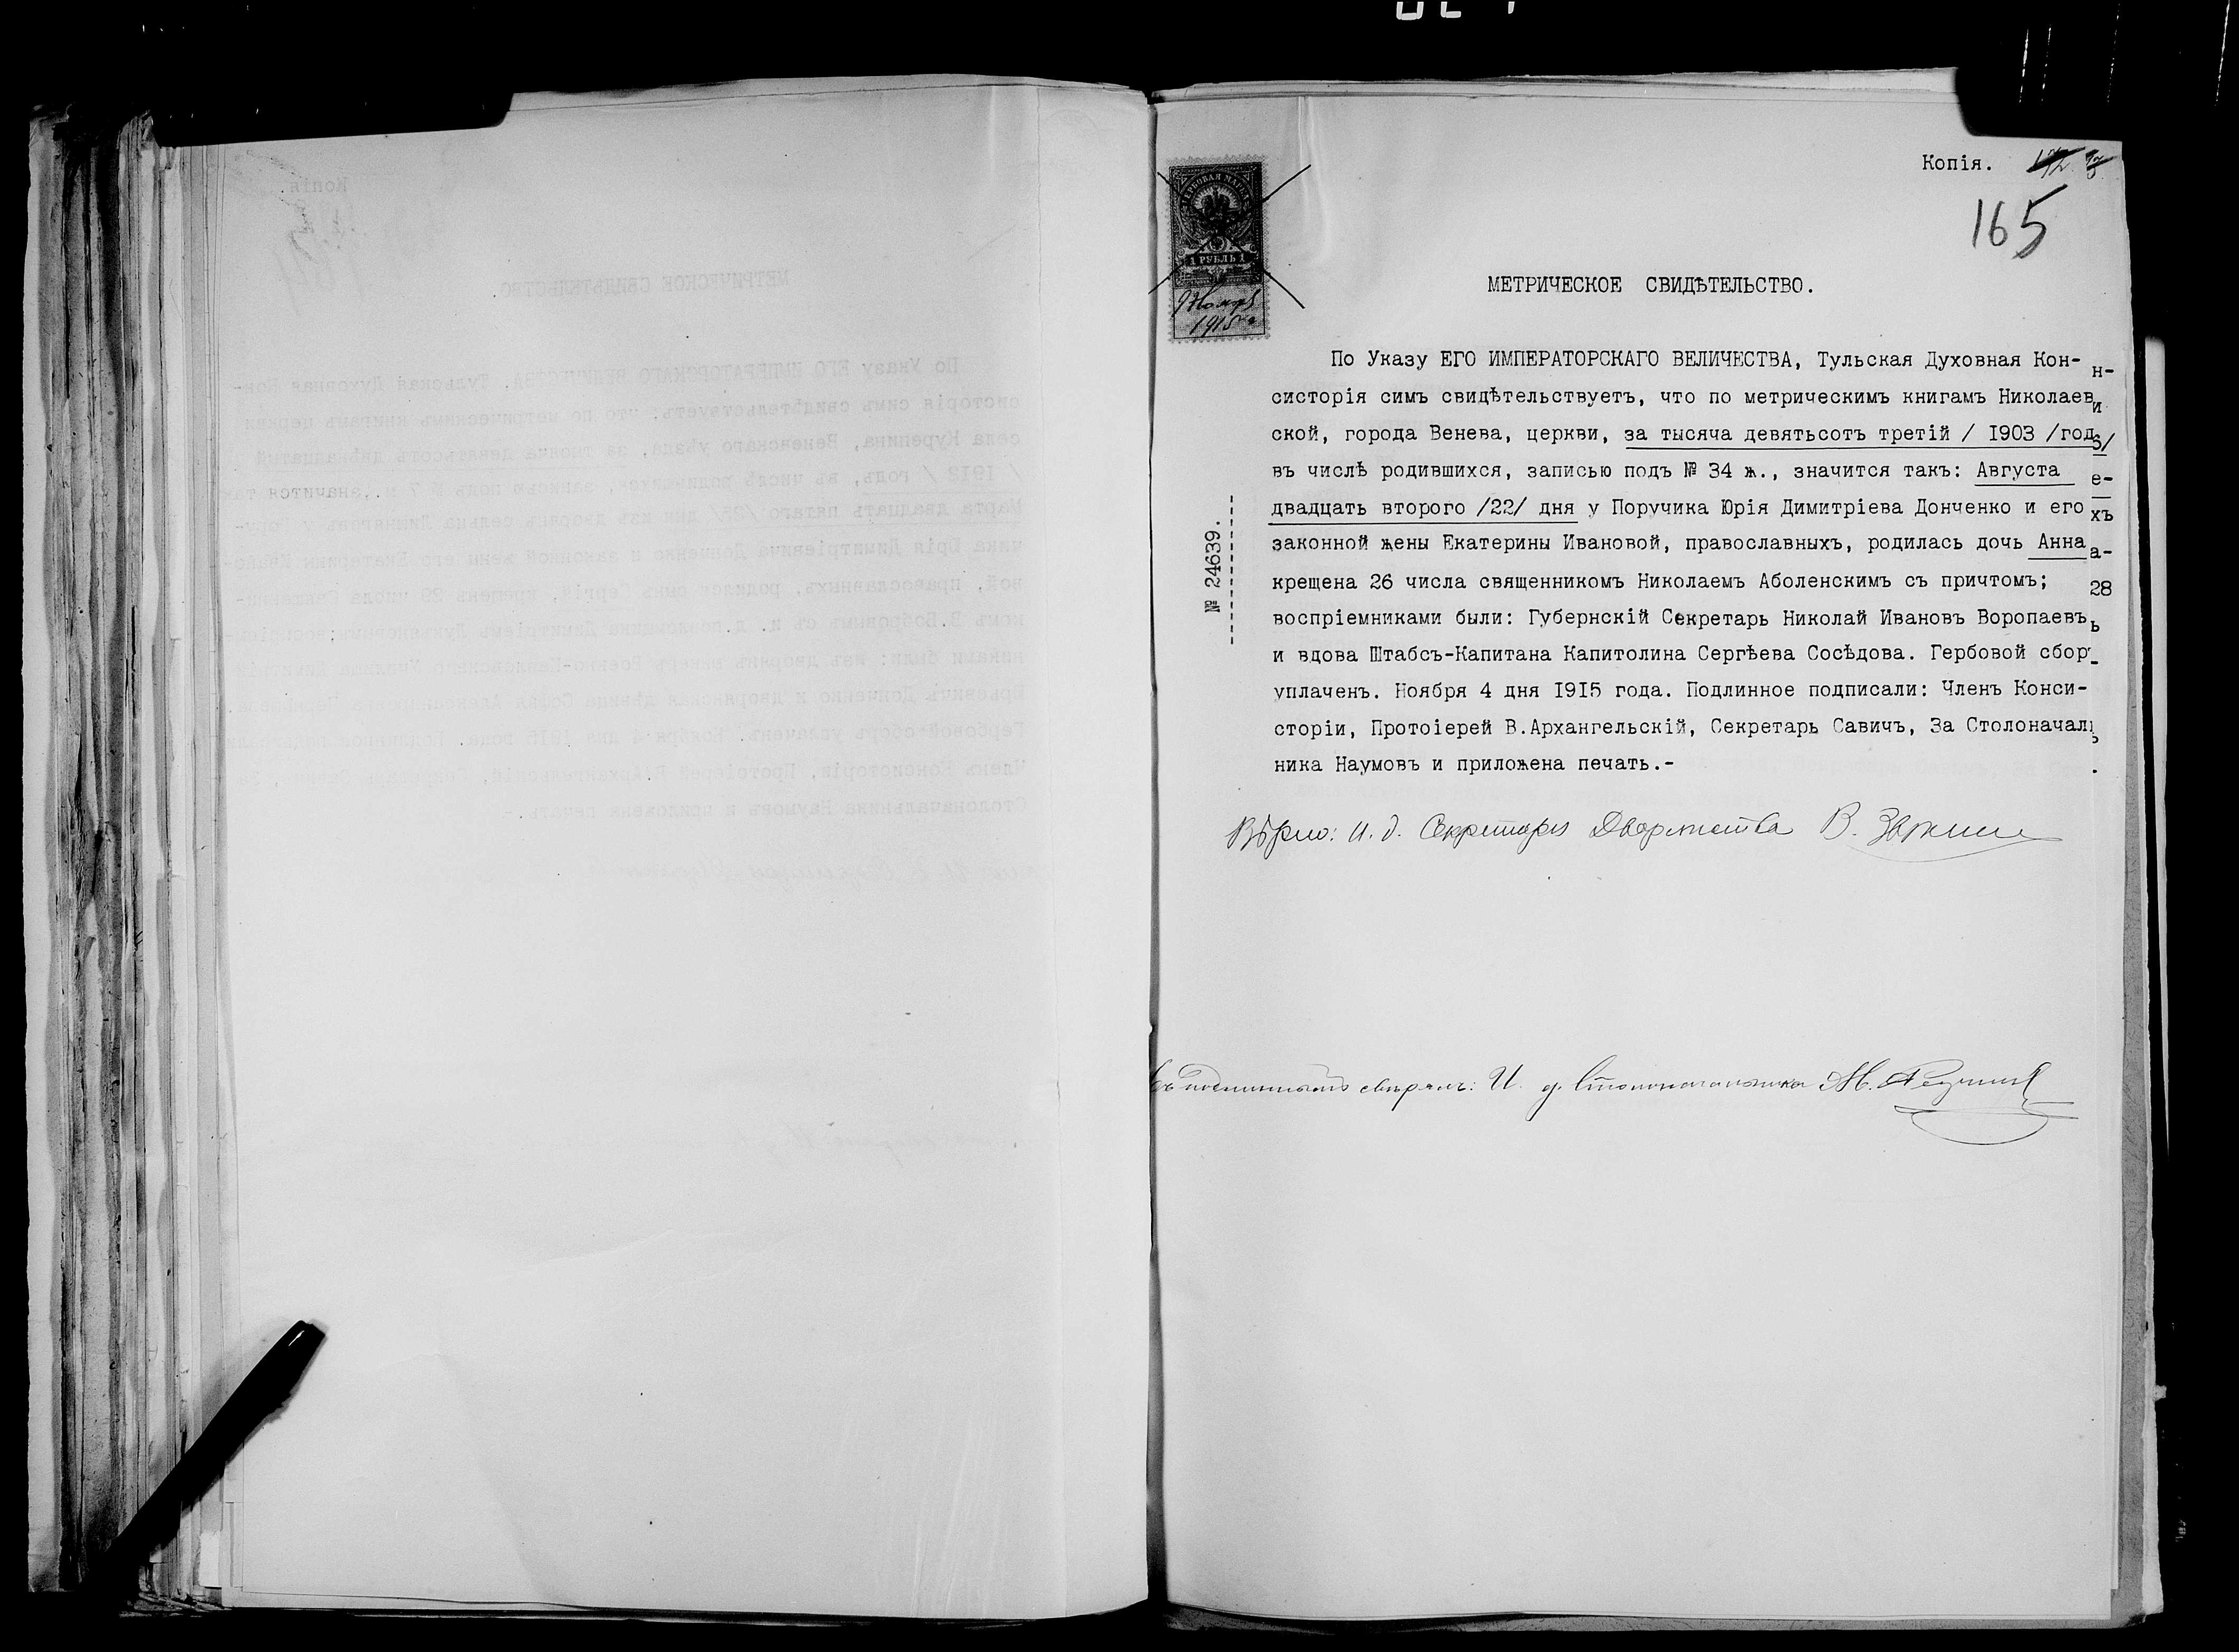 Копія.
165
ГЕРБОВАЯ МАРКА
1 РУБЛЬ 1
1915
МЕТРИЧЕСКОЕ СВИДѢТЕЛЬСТВО.
№ 24639.
По Указу ЕГО ИМПЕРАТОРСКАГО ВЕЛИЧЕСТВА, Тульская Духовная Кон-
систорія симъ свидѣтельствуетъ, что по метрическимъ книгамъ Николаев
ской, города Венева, церкви, за тысяча девятьсотъ третій / 1903 /год
въ числѣ родившихся, записью подъ № 34 ж., значится такъ: Августа
двадцать второго /22/ дня у Поручика Юрія Димитріева Донченко и его
законной жены Екатерины Ивановой, православныхъ, родилась дочь Анна
крещена 26 числа священникомъ Николаемъ Аболенскимъ съ причтомъ;
воспріемниками были: Губернскій Секретарь Николай Ивановъ Воропаевъ
и вдова Штабсъ-Капитана Капитолина Сергѣева Сосѣдова. Гербовой сбор
уплаченъ. Ноября 4 дня 1915 года. Подлинное подписали: Членъ Конси-
сторіи, Протоіерей В.Архангельскій, Секретарь Савичъ, За Столоначаль
ника Наумовъ и приложена печать.-
Вѣрно: И. д. Секретаря Дворянства В.
Съ подлиннымъ свѣрялъ: И. д. Столоначальника М.